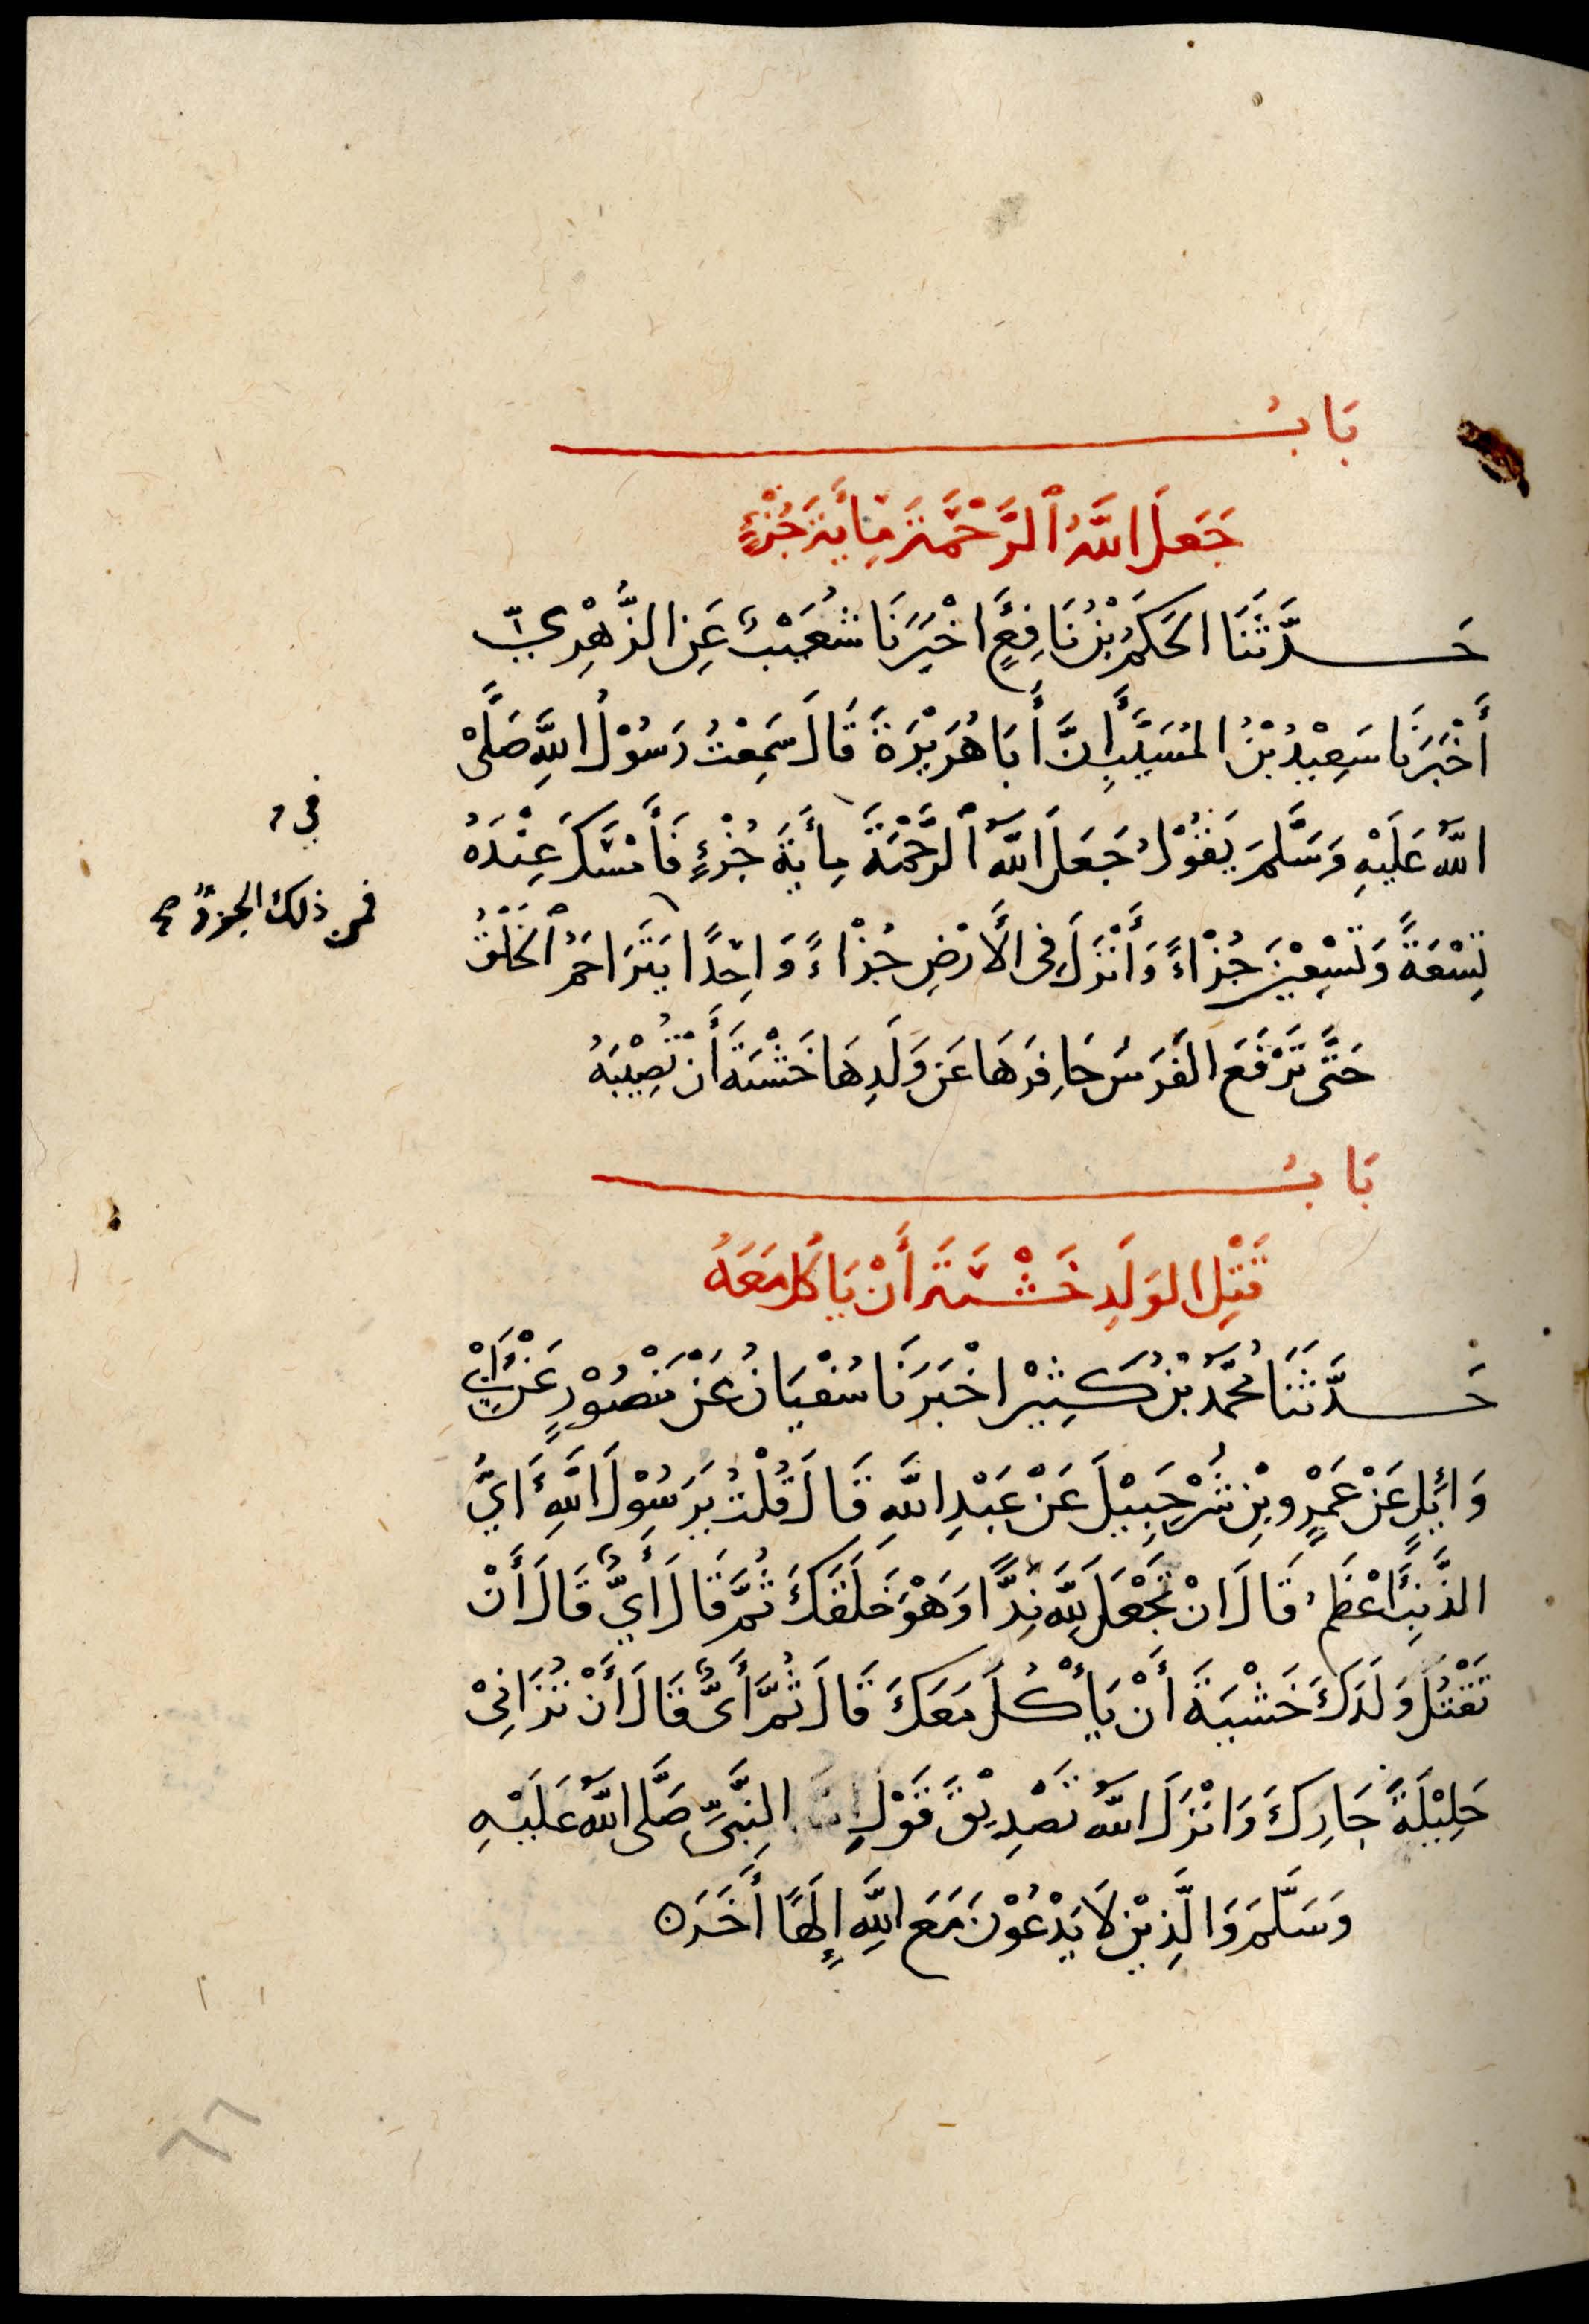 بَابُ
جَعَلَ اللَّهُ ٱلرَّحْمَةَ مِايَةَ جُزْءٍ
حَدَّثَنَا الحَكَمُ بْنُ نَافِعٍ أَخْبَرَنَا شُعَيْبٌ عَنِ الزُّهْرِيِّ
أَخْبَرَنَا سَعِيْدُ بْنُ المُسَيَّبِ أَنَّ أَبَا هُرَيْرَةَ قَالَ سَمِعْتُ رَسُوْلَ اللَّهِ صَلَّىْ
اللَّهُ عَلَيْهِ وَسَلَّمَ يَقُوْلُ جَعَلَ اللَّهُ ٱلرَّحْمَةَ مِأيَةَ جُزْءٍ فَأَمْسَكَ عِنْدَهُ
تِسْعَةً وَتِسْعِيْنَ جُزْاءً وَأَنْزَلَ فِى الأَرْضِ جُزْاءً وَاحِدًا يَتَرَاحَمُ ٱلخَلْقُ
حَتَّى تَرْفَعَ الفَرَسُ حَافِرَهَا عَنْ وَلَدِهَا خَشْيَةَ أَنْ تُصِيْبَهُ
في
فمن ذلك الجزؤ صح
بَابُ
قَتْلِ الوَلَدِ خَشْيَةَ أَنْ يَاكُلَ مَعَهُ
حَدَّثَنَا مُحَمَّدُ بْنُ كَثِيْرٍ اخْبَرَنَا سُفْيَانُ عَنْ مَنْصُوْرٍ عَنْ أَبِيْ
وَائِلٍ عَنْ عَمْرِو بْنِ شُرَحْبِيْلَ عَنْ عَبْدِ اللَّهِ قَالَ قُلْتُ يَرَسُوْلَ اللَّهِ أَيُّ
الذَّنْبِ أَعْظَمُ قَالَ انْ تَجْعَلَ لِلَّهِ نِدًّا وَهْوَ خَلَقَكَ ثُمَّ قَالَ أَيٌّ قَالَ أَنْ
تَقْتُلَ وَلَدَكَ خَشْيَةَ أَنْ يَأْكُلَ مَعَكَ قَالَ ثُمَّ أَىٌّ قَالَ أَنْ تُزَانِىْ
حَلِيْلَةَ جَارِكَ وَانْزَلَ اللَّهُ تَصْدِيْقَ قَوْلِ النَّبِىِّ صَلَّى اللَّهُ عَلَيْهِ
وَسَلَّمَ وَالَّذِيْنَ لَا يَدْعُوْنَ مَعَ اللَّهِ إِلَهًا أَخَرَ ه